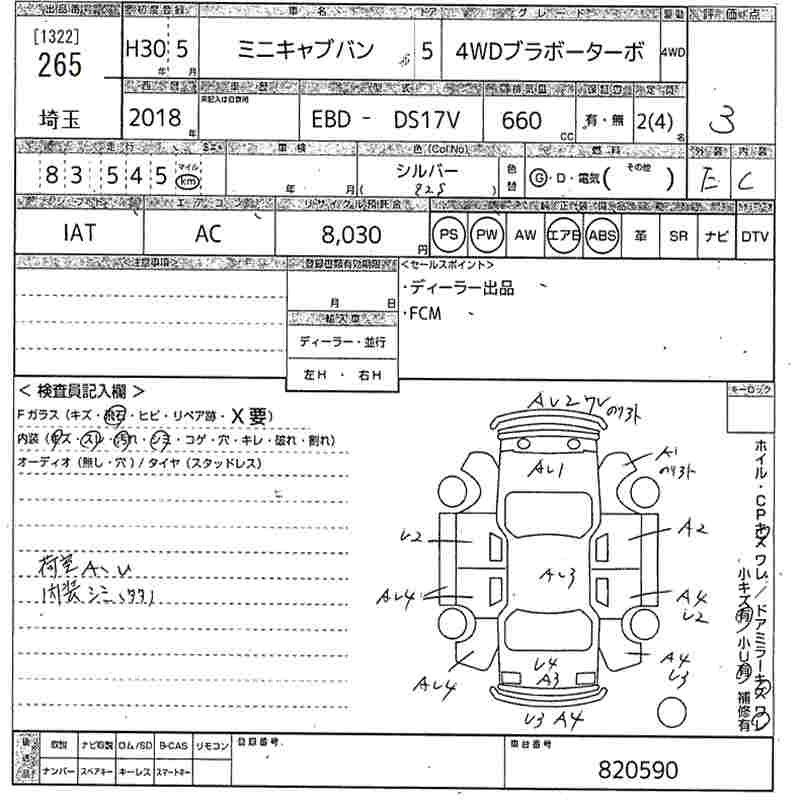 出品番号 初度登録 車名 ドア グレード 駆動 評価点
[1322]
265
H30 5 ミニキャブバン 5 4WDブラボーターボ 4WD
年 月
西暦 車歴 型式 排気量 定員
未記入は自家用
埼玉 2018 年 EBD - DS17V 660 CC 有・無 2(4) 名 3
走行 車検 色(Col No) 燃料 外装 内装
83,545 マイル km 年 月 シルバー 色替 G・D・電気( その他 ) E C
シフト エアコン リサイクル預託金
IAT AC 8,030 円 PS PW AW エアB ABS 革 SR ナビ DTV
<注意事項> 登録書類有効期限 <セールスポイント>
月 日
・ディーラー出品
・FCM
輸入車
ディーラー・並行
左H ・ 右H
<検査員記入欄>
キーロック
Fガラス(キズ・飛石・ヒビ・リペア跡・X要)
内装(キズ・スレ・汚れ・シミ・コゲ・穴・キレ・破れ・割れ)
オーディオ(無し・穴)/タイヤ(スタッドレス)
AU2
AU1
U2
A2
AU3
AU4
A4
U2
AU4
U4
A3
A4
U3
U3 A4
荷室AU
内装シミ
ホイル・CPキズ ワレ/ドアミラーキズ ワレ
小キズ有/小U有/補修有
後送品 取説 ナビ取説 ロム/SD B-CAS リモコン 登録番号 車台番号
ナンバー スペアキー キーレス スマートキー 820590